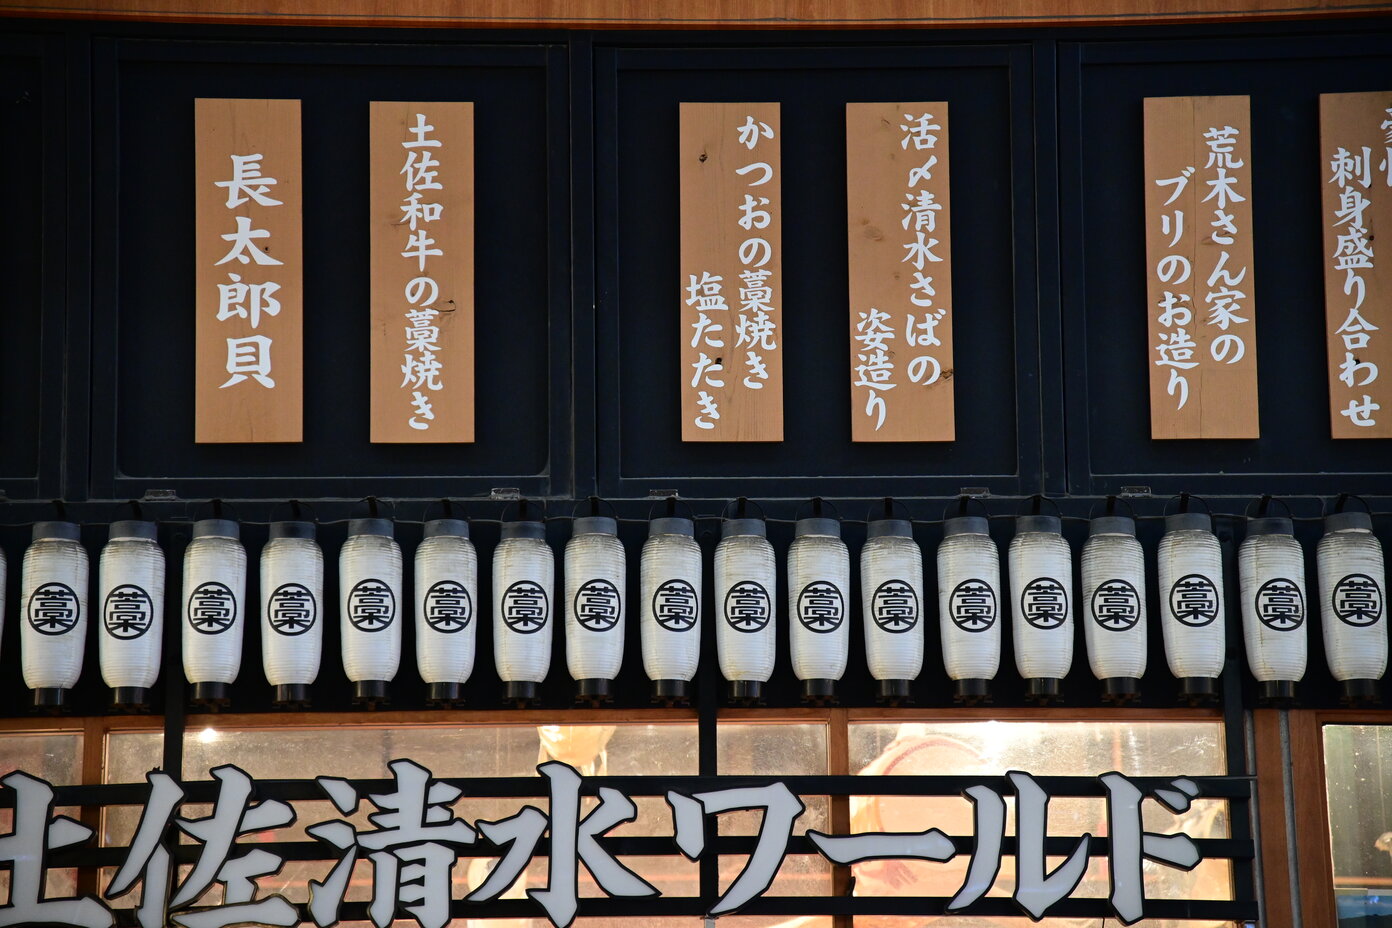 長太郎貝
土佐和牛の藁焼き
かつおの藁焼き
塩たたき
活〆清水さばの
姿造り
荒木さん家の
ブリのお造り
刺身盛り合わせ
藁 藁 藁 藁 藁 藁 藁 藁 藁 藁 藁 藁 藁 藁 藁 藁 藁 藁
土佐清水ワールド